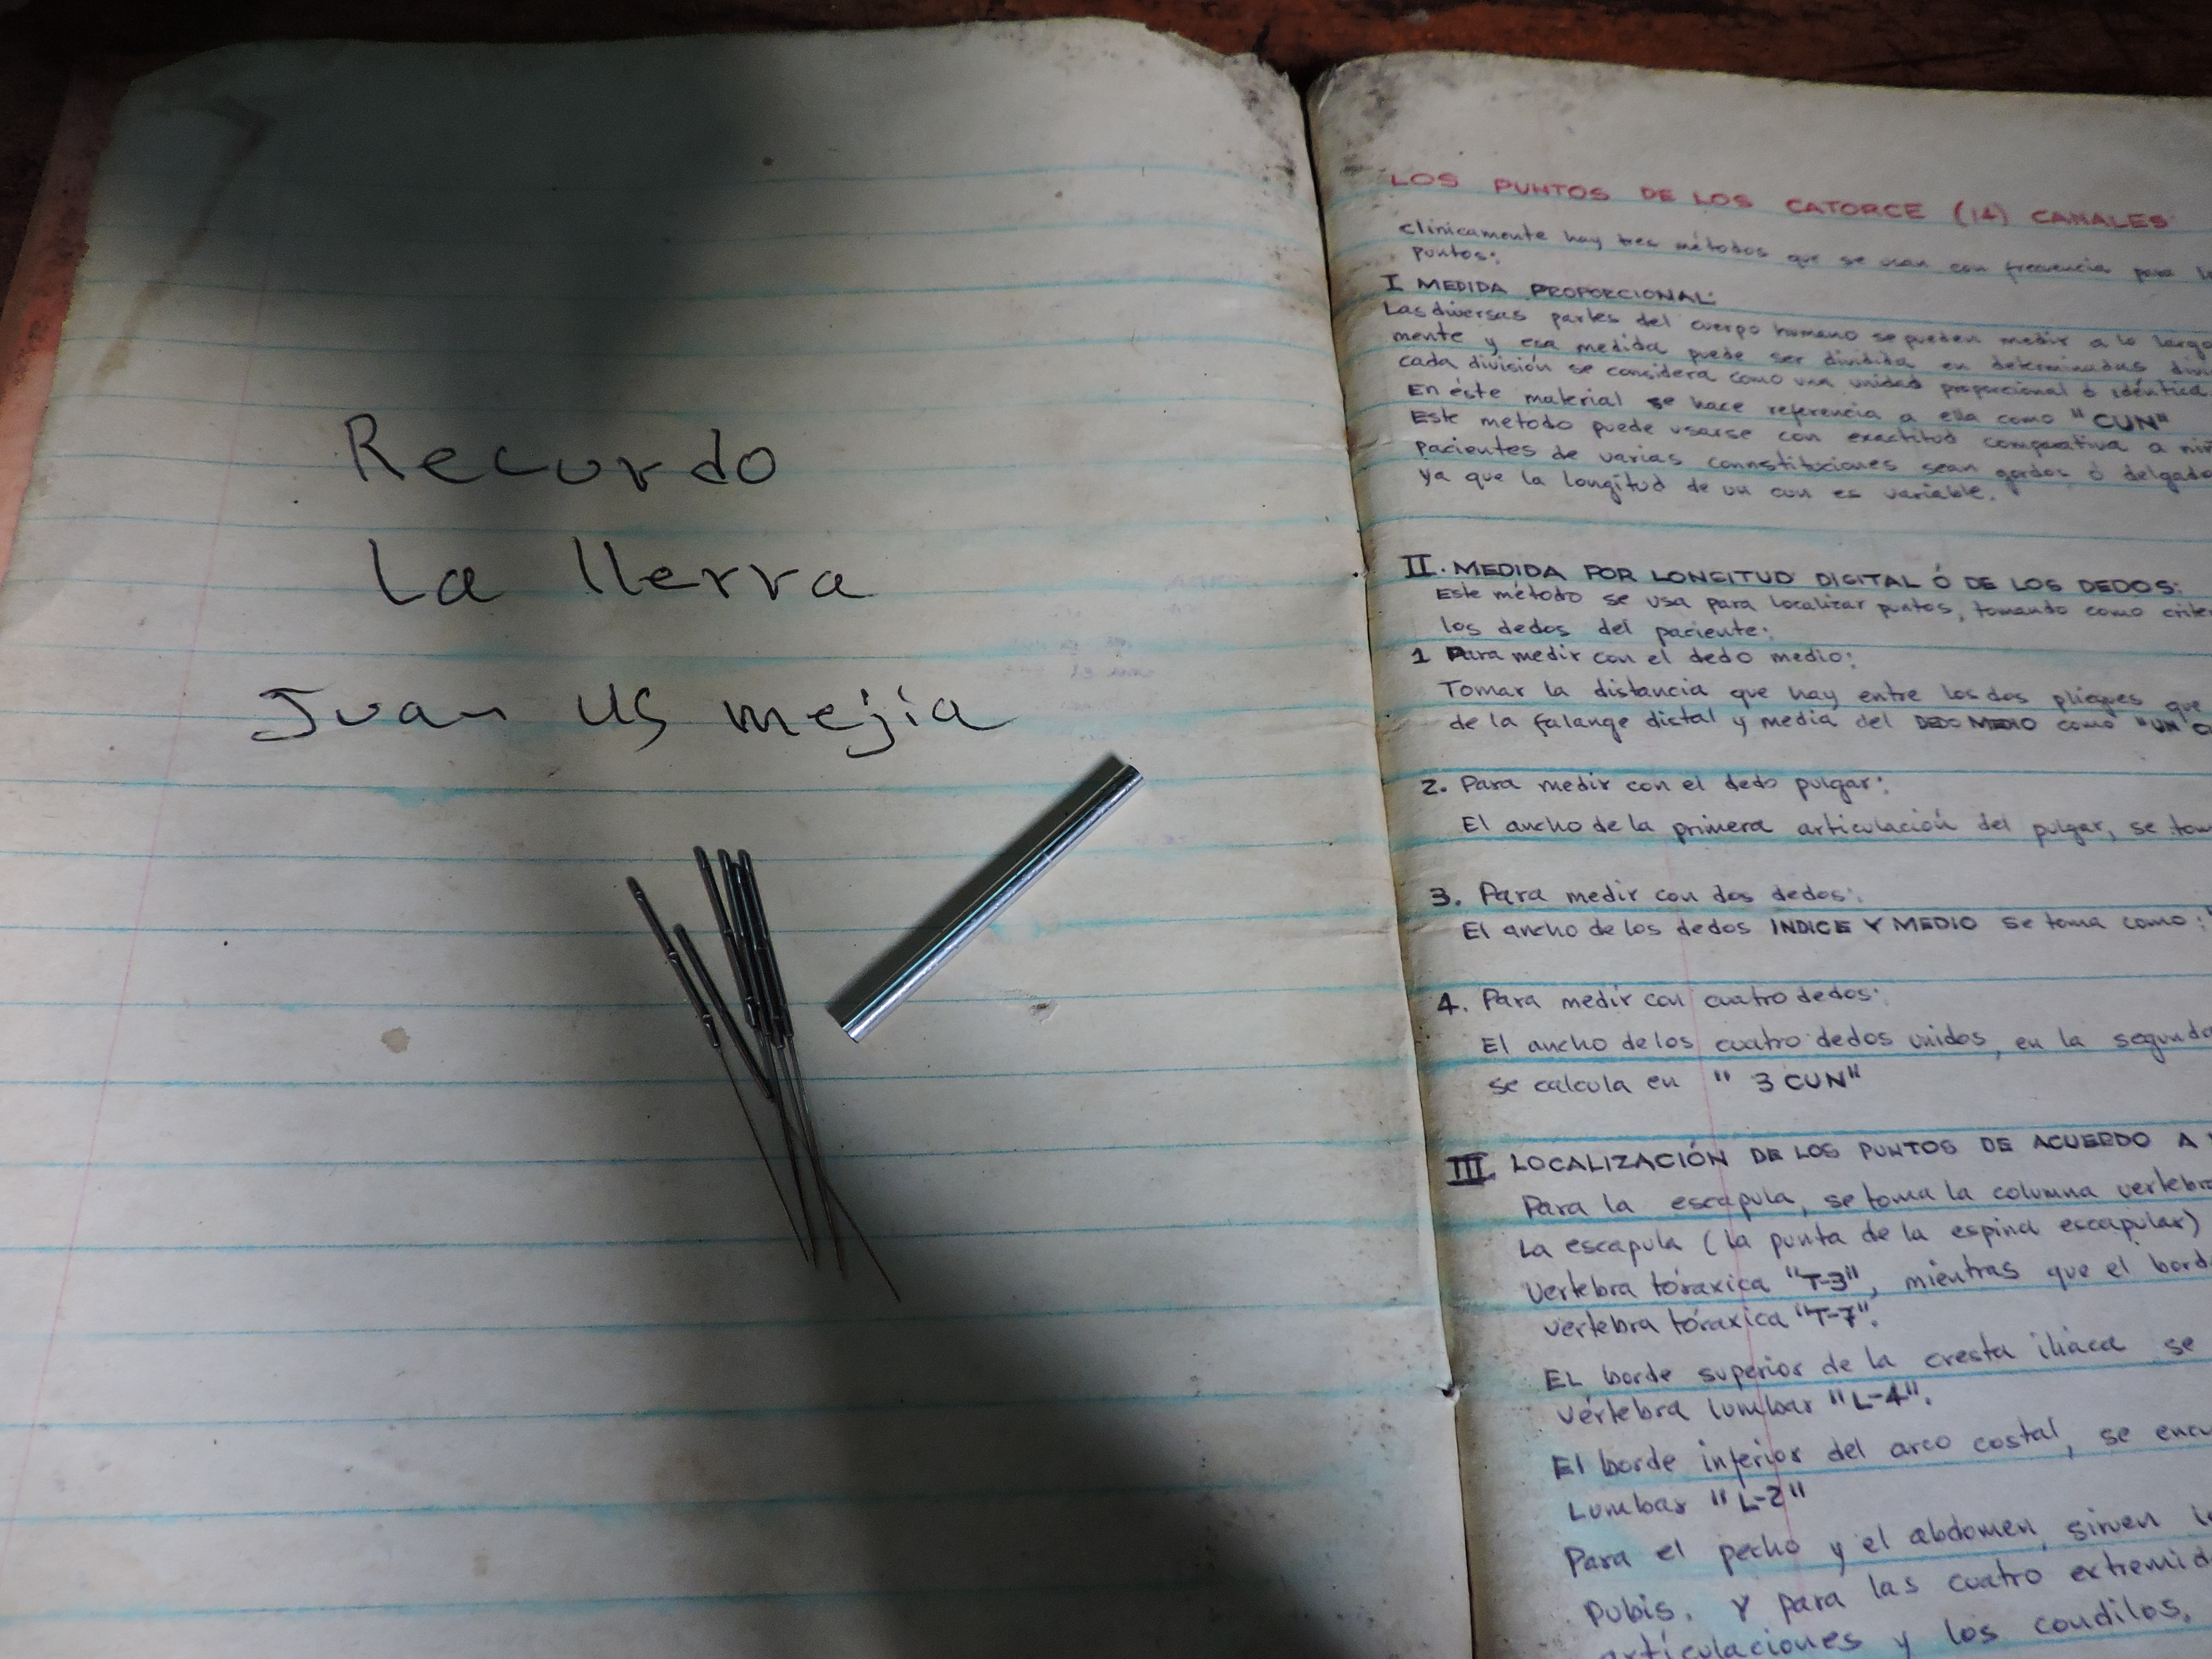 Recurdo
La llerra
Juan us mejia
LOS PUNTOS DE LOS CATORCE (14) CANALES
clínicamente hay tres métodos que se usan con frecuencia para
puntos:
I MEDIDA PROPORCIONAL:
Las diversas partes del cuerpo humano se pueden medir a lo largo
mente y esa medida puede ser dividida en determinadas
cada división se considera como una unidad proporcional ó idéntica
En éste material se hace referencia a ella como "CUN"
Este metodo puede usarse con exactitud comparativa a
pacientes de varias connstituciones sean gordos ó delgado
ya que la longitud de un cun es variable.
II. MEDIDA POR LONGITUD DIGITAL Ó DE LOS DEDOS:
Este método se usa para localizar puntos, tomando como
los dedos del paciente:
1 Para medir con el dedo medio:
Tomar la distancia que hay entre los dos pliegues que
de la falange distal y media del DEDO MEDIO como "UN
2. Para medir con el dedo pulgar:
El ancho de la primera articulación del pulgar, se
3. Para medir con dos dedos:
El ancho de los dedos INDICE Y MEDIO se toma como:
4. Para medir con cuatro dedos:
El ancho de los cuatro dedos unidos, en la segunda
se calcula en "3 CUN"
III LOCALIZACIÓN DE LOS PUNTOS DE ACUERDO A
Para la escapula, se toma la columna
La escapula (la punta de la espina escapular)
vertebra tóraxica "T-3", mientras que el
vertebra tóraxica "T-7".
EL borde superior de la cresta iliaca se
vértebra lumbar "L-4".
El borde inferior del arco costal, se
Lumbar "L-2"
Para el pecho y el abdomen, sirven
Pubis. Y para las cuatro
articulaciones y los condilos.